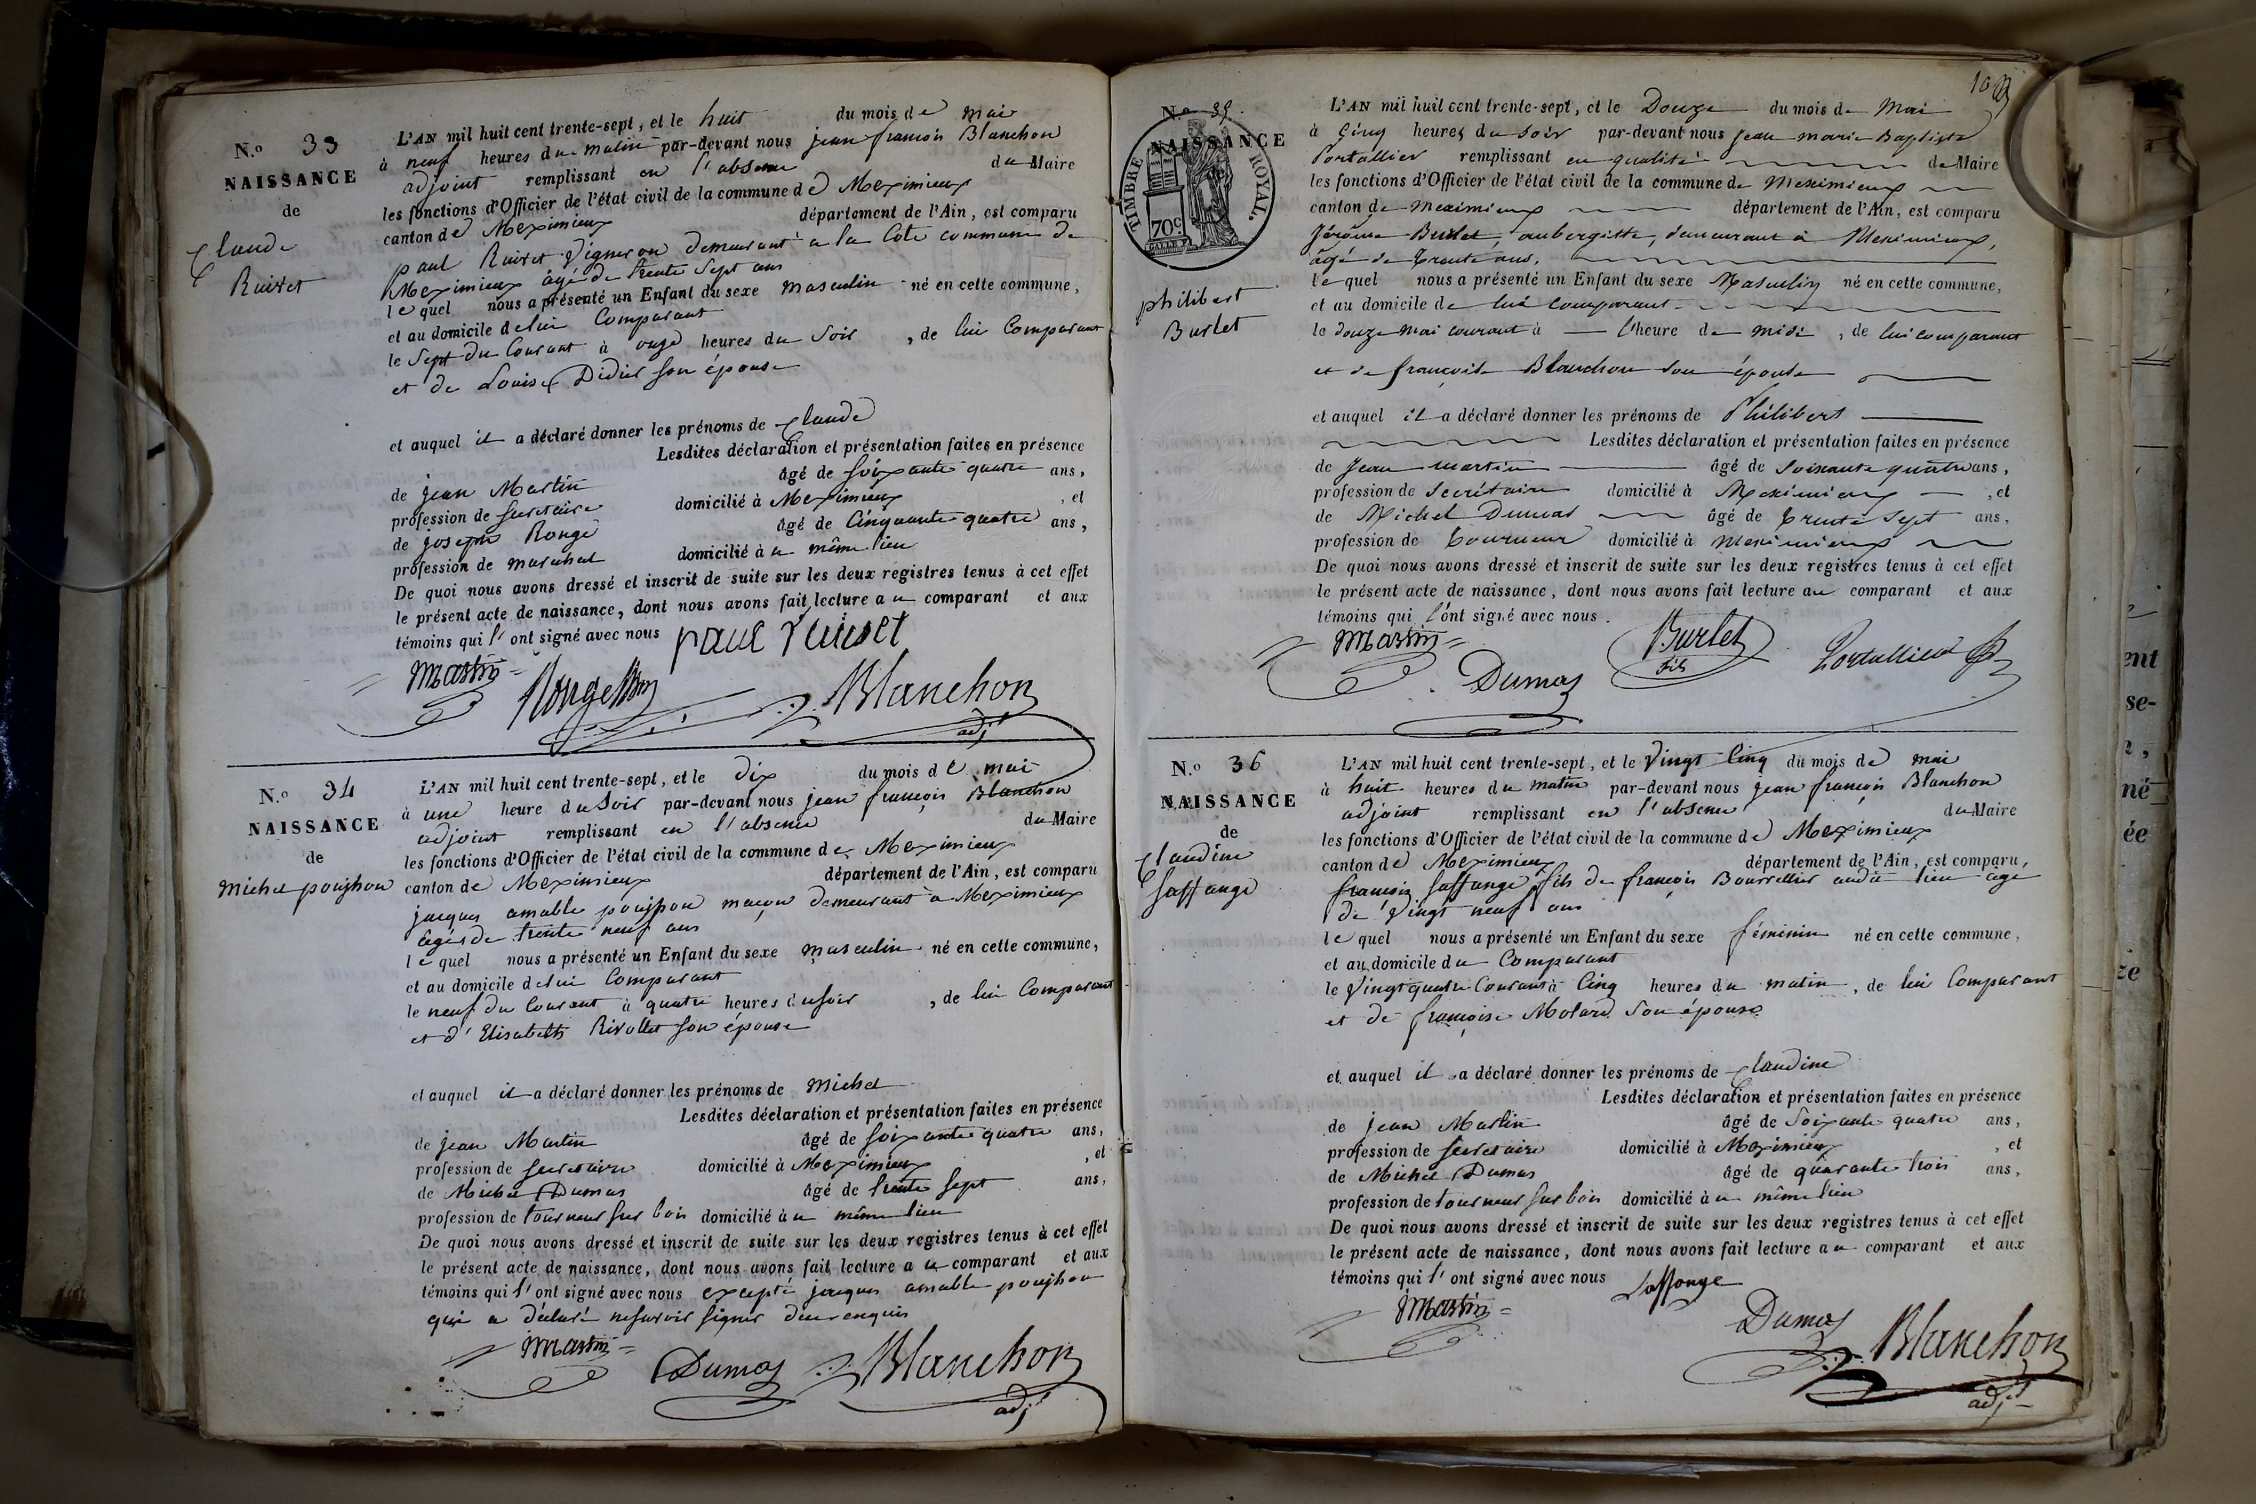 N.º 33
NAISSANCE
de
Claude
Ruivet
L'AN mil huit cent trente-sept, et le huit du mois de mai
à neuf heures du matin par-devant nous jean françois Blanchon
adjoint remplissant en l'absence du Maire
les fonctions d'Officier de l'état civil de la commune de Meximieux
canton de Meximieux département de l'Ain, est comparu
paul Ruivet Vigneron demeurant a la Côte commune de
Meximieux âgé de trente sept ans
lequel nous a présenté un Enfant du sexe masculin né en cette commune,
et au domicile de lui Comparant
le Sept du Courant à onze heures du Soir, de lui Comparant
et de Louise Didier son épouse
et auquel il a déclaré donner les prénoms de Claude
Lesdites déclaration et présentation faites en présence
de jean Martin âgé de soixante quatre ans,
profession de secretaire domicilié à Meximieux, et
de joseph Rongé âgé de Cinquante quatre ans,
profession de marechal domicilié à u même lieu
De quoi nous avons dressé et inscrit de suite sur les deux registres tenus à cet effet
le présent acte de naissance, dont nous avons fait lecture au comparant et aux
témoins qui l'ont signé avec nous paul ruivet
Martin
Blanchon
adjt
N.º 34
NAISSANCE
de
Michel poujhon
L'AN mil huit cent trente-sept, et le dix du mois de mai
à une heure du Soir par-devant nous jean françois Blanchon
adjoint remplissant en l'absence du Maire
les fonctions d'Officier de l'état civil de la commune de Meximieux
canton de Meximieux département de l'Ain, est comparu
jacques amable poujhon maçon demeurant à Meximieux
âgés de trente neuf ans
lequel nous a présenté un Enfant du sexe masculin né en cette commune,
et au domicile de lui Comparant
le neuf du Courant à quatre heures du soir, de lui Comparant
et d'Elisabeth Rivollet son épouse
et auquel il a déclaré donner les prénoms de Michel
Lesdites déclaration et présentation faites en présence
de jean Martin âgé de soixante quatre ans,
profession de secretaire domicilié à Meximieux, et
de Michel Dumas âgé de trente sept ans,
profession de tourneur sur bois domicilié à u même lieu
De quoi nous avons dressé et inscrit de suite sur les deux registres tenus à cet effet
le présent acte de naissance, dont nous avons fait lecture au comparant et aux
témoins qui l'ont signé avec nous excepté jacques amable poujhon
qui a déclaré ne savoir signer de ce enquis
Martin
Dumas Blanchon
adjt
109
N.º 35.
NAISSANCE
TIMBRE ROYAL.
70c
philibert
Burlet
L'AN mil huit cent trente-sept, et le Douze du mois de Mai
à Cinq heures du soir par-devant nous Jean marie Baptiste
Portallier remplissant en qualité de Maire
les fonctions d'Officier de l'état civil de la commune de Meximieux
canton de Meximieux département de l'Ain, est comparu
Jérôme Burlet, aubergiste, demeurant à Meximieux,
âgé de trente ans,
lequel nous a présenté un Enfant du sexe Masculin né en cette commune,
et au domicile de lui comparant
le douze mai courant à l'heure de midi, de lui comparant
et de françoise Blanchon son épouse
et auquel il a déclaré donner les prénoms de Philibert
Lesdites déclaration et présentation faites en présence
de Jean martin âgé de soixante quatre ans,
profession de Secrétaire domicilié à Meximieux, et
de Michel Dumas âgé de trente sept ans,
profession de tourneur domicilié à Meximieux
De quoi nous avons dressé et inscrit de suite sur les deux registres tenus à cet effet
le présent acte de naissance, dont nous avons fait lecture au comparant et aux
témoins qui l'ont signé avec nous.
Martin Burlet
fils
Portallier
Dumas
N.º 36
NAISSANCE
de
Claudine
Saffange
L'AN mil huit cent trente-sept, et le Vingt Cinq du mois de mai
à huit heures du matin par-devant nous jean françois Blanchon
adjoint remplissant en l'absence du Maire
les fonctions d'Officier de l'état civil de la commune de Meximieux
canton de Meximieux département de l'Ain, est comparu,
françois Saffange fils de françois Bourrellier audit lieu agé
de Vingt neuf ans
lequel nous a présenté un Enfant du sexe féminin né en cette commune,
et au domicile du Comparant
le Vingt quatre Courant à Cinq heures du matin, de lui Comparant
et de françoise Molard son épouse
et auquel il a déclaré donner les prénoms de Claudine
Lesdites déclaration et présentation faites en présence
de jean Martin âgé de Soixante quatre ans,
profession de secretaire domicilié à Meximieux, et
de Michel Dumas âgé de quarante trois ans,
profession de tourneur sur bois domicilié à u même lieu
De quoi nous avons dressé et inscrit de suite sur les deux registres tenus à cet effet
le présent acte de naissance, dont nous avons fait lecture au comparant et aux
témoins qui l'ont signé avec nous Saffange
Martin
Dumas
Blanchon
adjt
ent
se-
né
ée